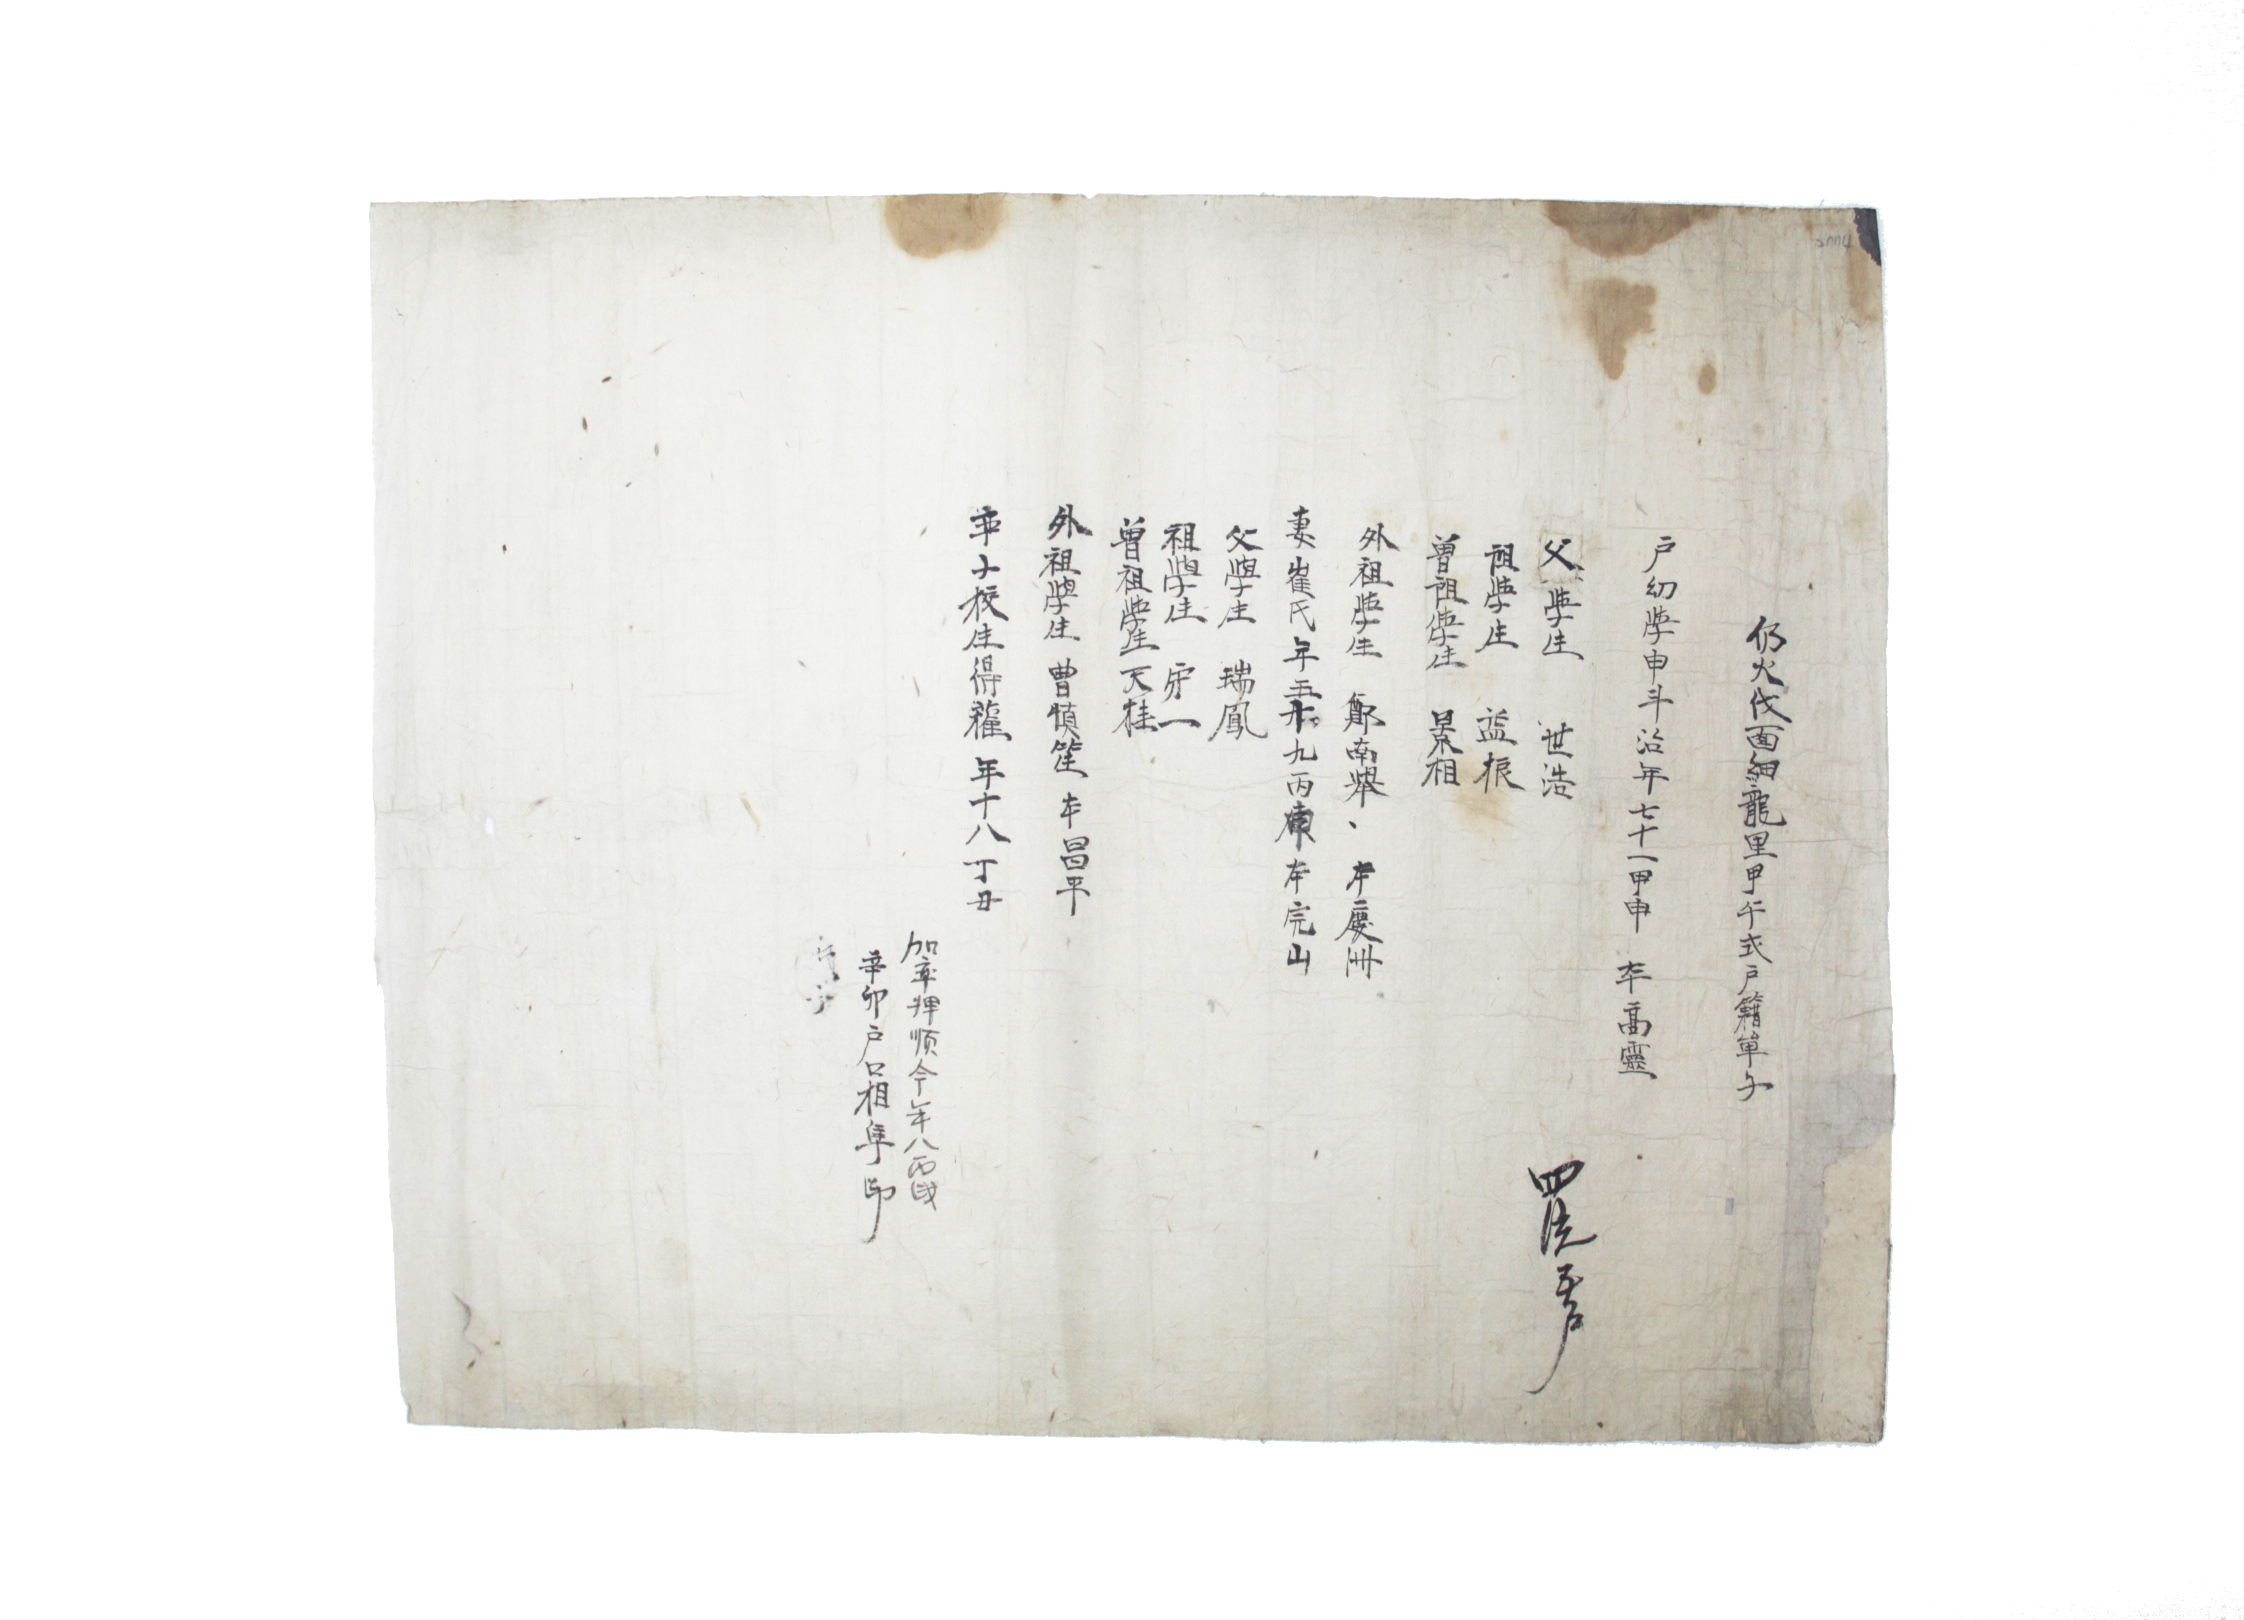 仍火伐面細龍里甲午式戶籍單子
戶幼學申斗治年七十一甲申 本高靈
父學生 世浩
祖學生 益根
曾祖學生 景相
外祖學生 鄭南舉 本慶州
妻崔氏年五十九丙申本完山
父學生 瑞鳳
祖學生 守一
曾祖學生天桂
外祖學生 曺慎笙 本昌平
率子校生得 年十八丁丑
加率婢順今年八丙戌
辛卯戶口相準印
四統 戶